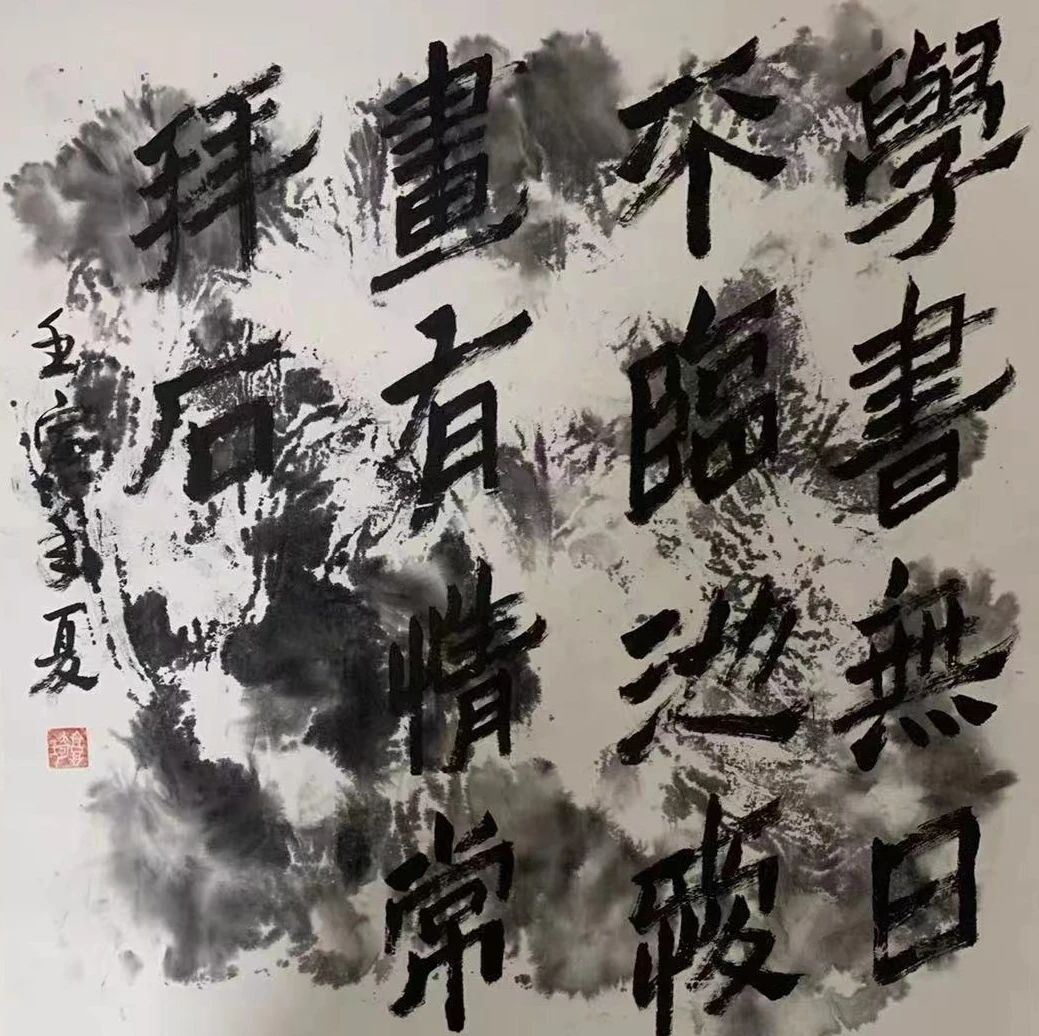 學書無日
不臨池破
畫有情常
拜石
壬寅年夏